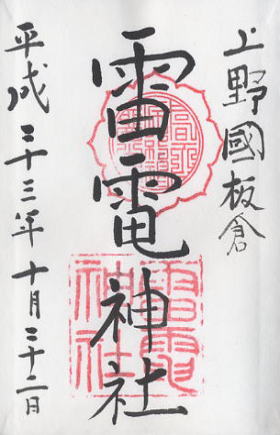 上野國板倉
雷電神社
平成二十三年十月二十二日
雷電
神社